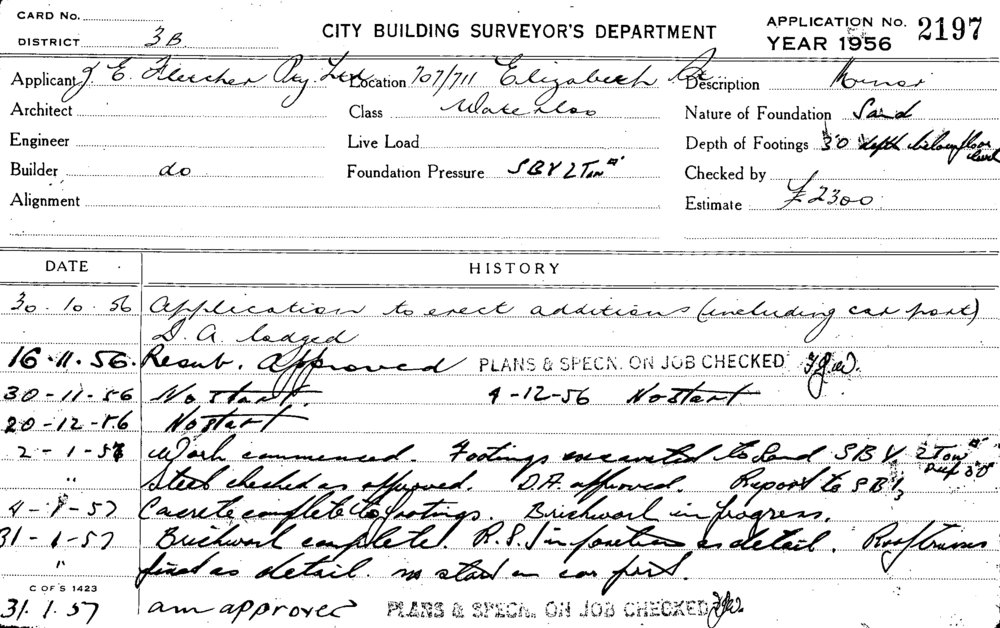 CARD No.
DISTRICT 3B
CITY BUILDING SURVEYOR'S DEPARTMENT
APPLICATION No. 2197
YEAR 1956
Applicant J E. Fletcher Pty Ltd Location 707/711 Elizabeth St Description Minor
Architect Class Waterloo Nature of Foundation Sand
Engineer Live Load Depth of Footings 3'0 depth below floor level
Builder do Foundation Pressure SBY 2 Ton #' Checked by
Alignment Estimate £2300
DATE HISTORY
30.10.56 Application to erect additions (including car port)
D.A. lodged
16.11.56. Resub. Approved PLANS & SPECN. ON JOB CHECKED
30-11-56 No start. 4-12-56 No start
20-12-56 No start
2-1-57 Work commenced. Footings excavated to Sand SBY 2 Ton #'
" Steel checked as approved. D.A. approved. Report to SB
4-1-57 Concrete complete to footings. Brickwork in progress.
31-1-57 Brickwork complete. R.S.J in position as detail. Roof trusses
" fixed as detail. no start on car port.
C OF S 1423
31.1.57 am approved PLANS & SPECN. ON JOB CHECKED